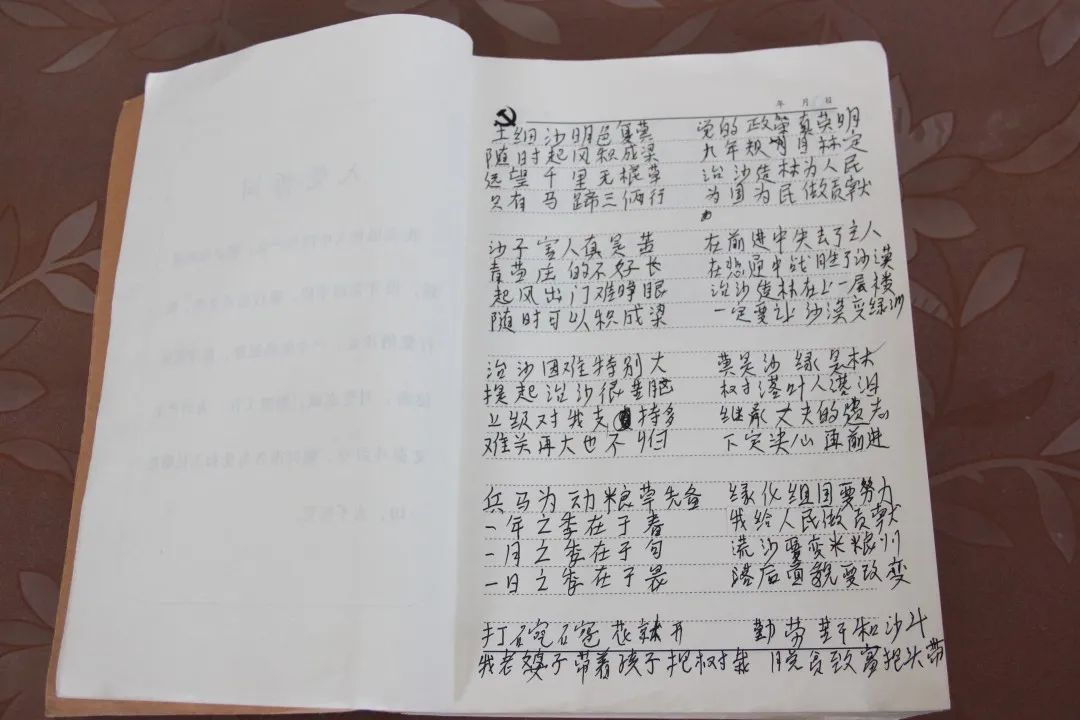 年 月 日
土细沙明色复黄 党的政策真英明
随时起风积成梁 九年规明育林定
远望千里无棍草 治沙造林为人民
只有马蹄三俩行 为国为民做贡献
沙子害人真是苦 在前进中失去了主人
青苗庄的不好长 在悲痛中战胜了沙漠
起风出门难睁眼 治沙造林在上一层楼
随时可以积成梁 一定要让沙漠变绿洲
治沙困难特别大 黄是沙绿是林
提起治沙很 树落叶人落泪
上级对我支持多 继承丈夫的遗志
难关再大也不归 下定决心再前进
兵马为动粮草先备 绿化组国要努力
一年之季在于春 我给人民做贡献
一月之季在于旬 流沙要变米粮川
一日之季在于晨 落后面貌要改变
打碗碗花就开 勤劳苦干和沙斗
我老婆子带着孩子把树栽 脱贫致富把头带